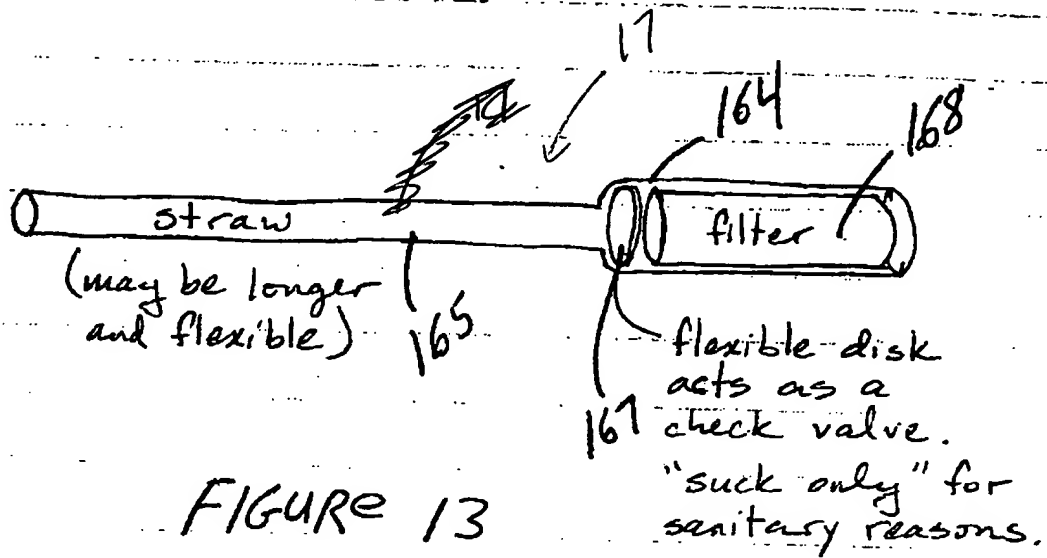 17
164
168
straw
filter
(may be longer
and flexible)
165
167
flexible disk
acts as a
check valve.
"suck only" for
sanitary reasons.
FIGURE 13